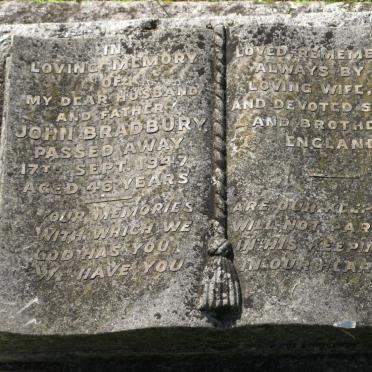 IN
LOVING MEMORY
OF
MY DEAR HUSBAND
AND FATHER
JOHN BRADBURY,
PASSED AWAY
17TH SEPT. 1947,
AGED 49 YEARS
YOUR MEMORIES
WITH WHICH WE
GOD HAS YOU
WE HAVE YOU
LOVED REMEMB
ALWAYS BY
LOVING WIFE,
AND DEVOTED S
AND BROTHE
ENGLAND
ARE OUR KEE
WILL NOT PAR
IN HIS KEEPI
IN OUR